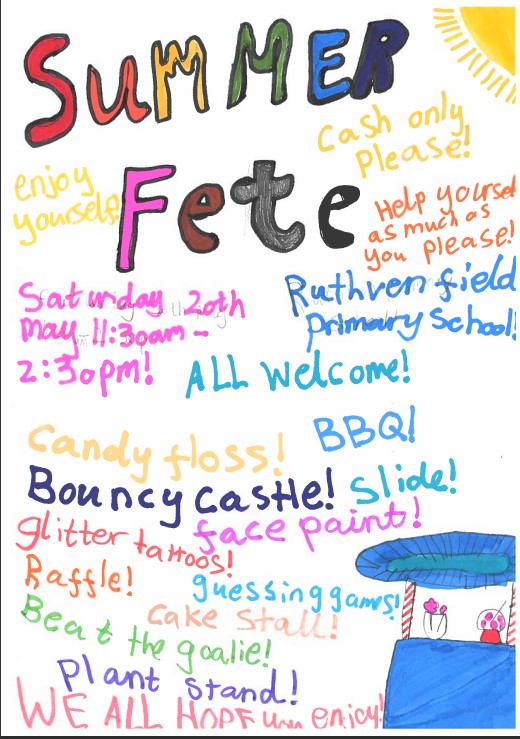 SUMMER
Fete
cash only
Please!
enjoy
yourself!
Help yourself
as much as
you please!
Saturday 20th
may 11:30am -
2:30pm!
Ruthvenfield
primary School!
ALL welcome!
candy floss!
BBQ!
Bouncy castle!
Slide!
glitter tattoos!
face paint!
Raffle!
guessing games!
Cake Stall!
Beat the goalie!
Plant stand!
WE ALL HOPE enjoy!